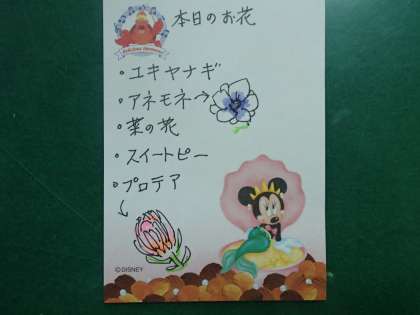 本日のお花
・ユキヤナギ
・アネモネ→
・菜の花
・スイートピー
・プロテア
©DISNEY